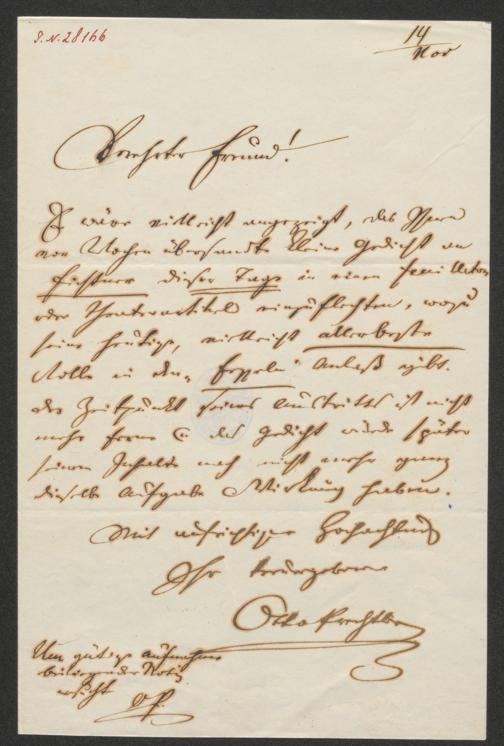 I.N. 28166
14
Nov
Verehrter Freund!
Es wäre vielleicht angezeigt, das Ihnen
vor Wochen übersandte kleine Gedicht an
Fichtner dieser Tage in einen
oder Theaterartikel einzuflechten, wozu
seine heutige, vielleicht allerbeste
Rolle in den „Fesseln" Anlaß gibt.
Der Zeitpunkt seines Austritts ist nicht
mehr ferne & das Gedicht würde später
seinem Inhalte nach nicht mehr ganz
dieselbe Wirkung haben.
Mit aufrichtiger Hochachtung
Ihr treuergebener
Otto Prechtler
Um gütige Aufnahme
beiliegender Notiz
ersucht
OP.